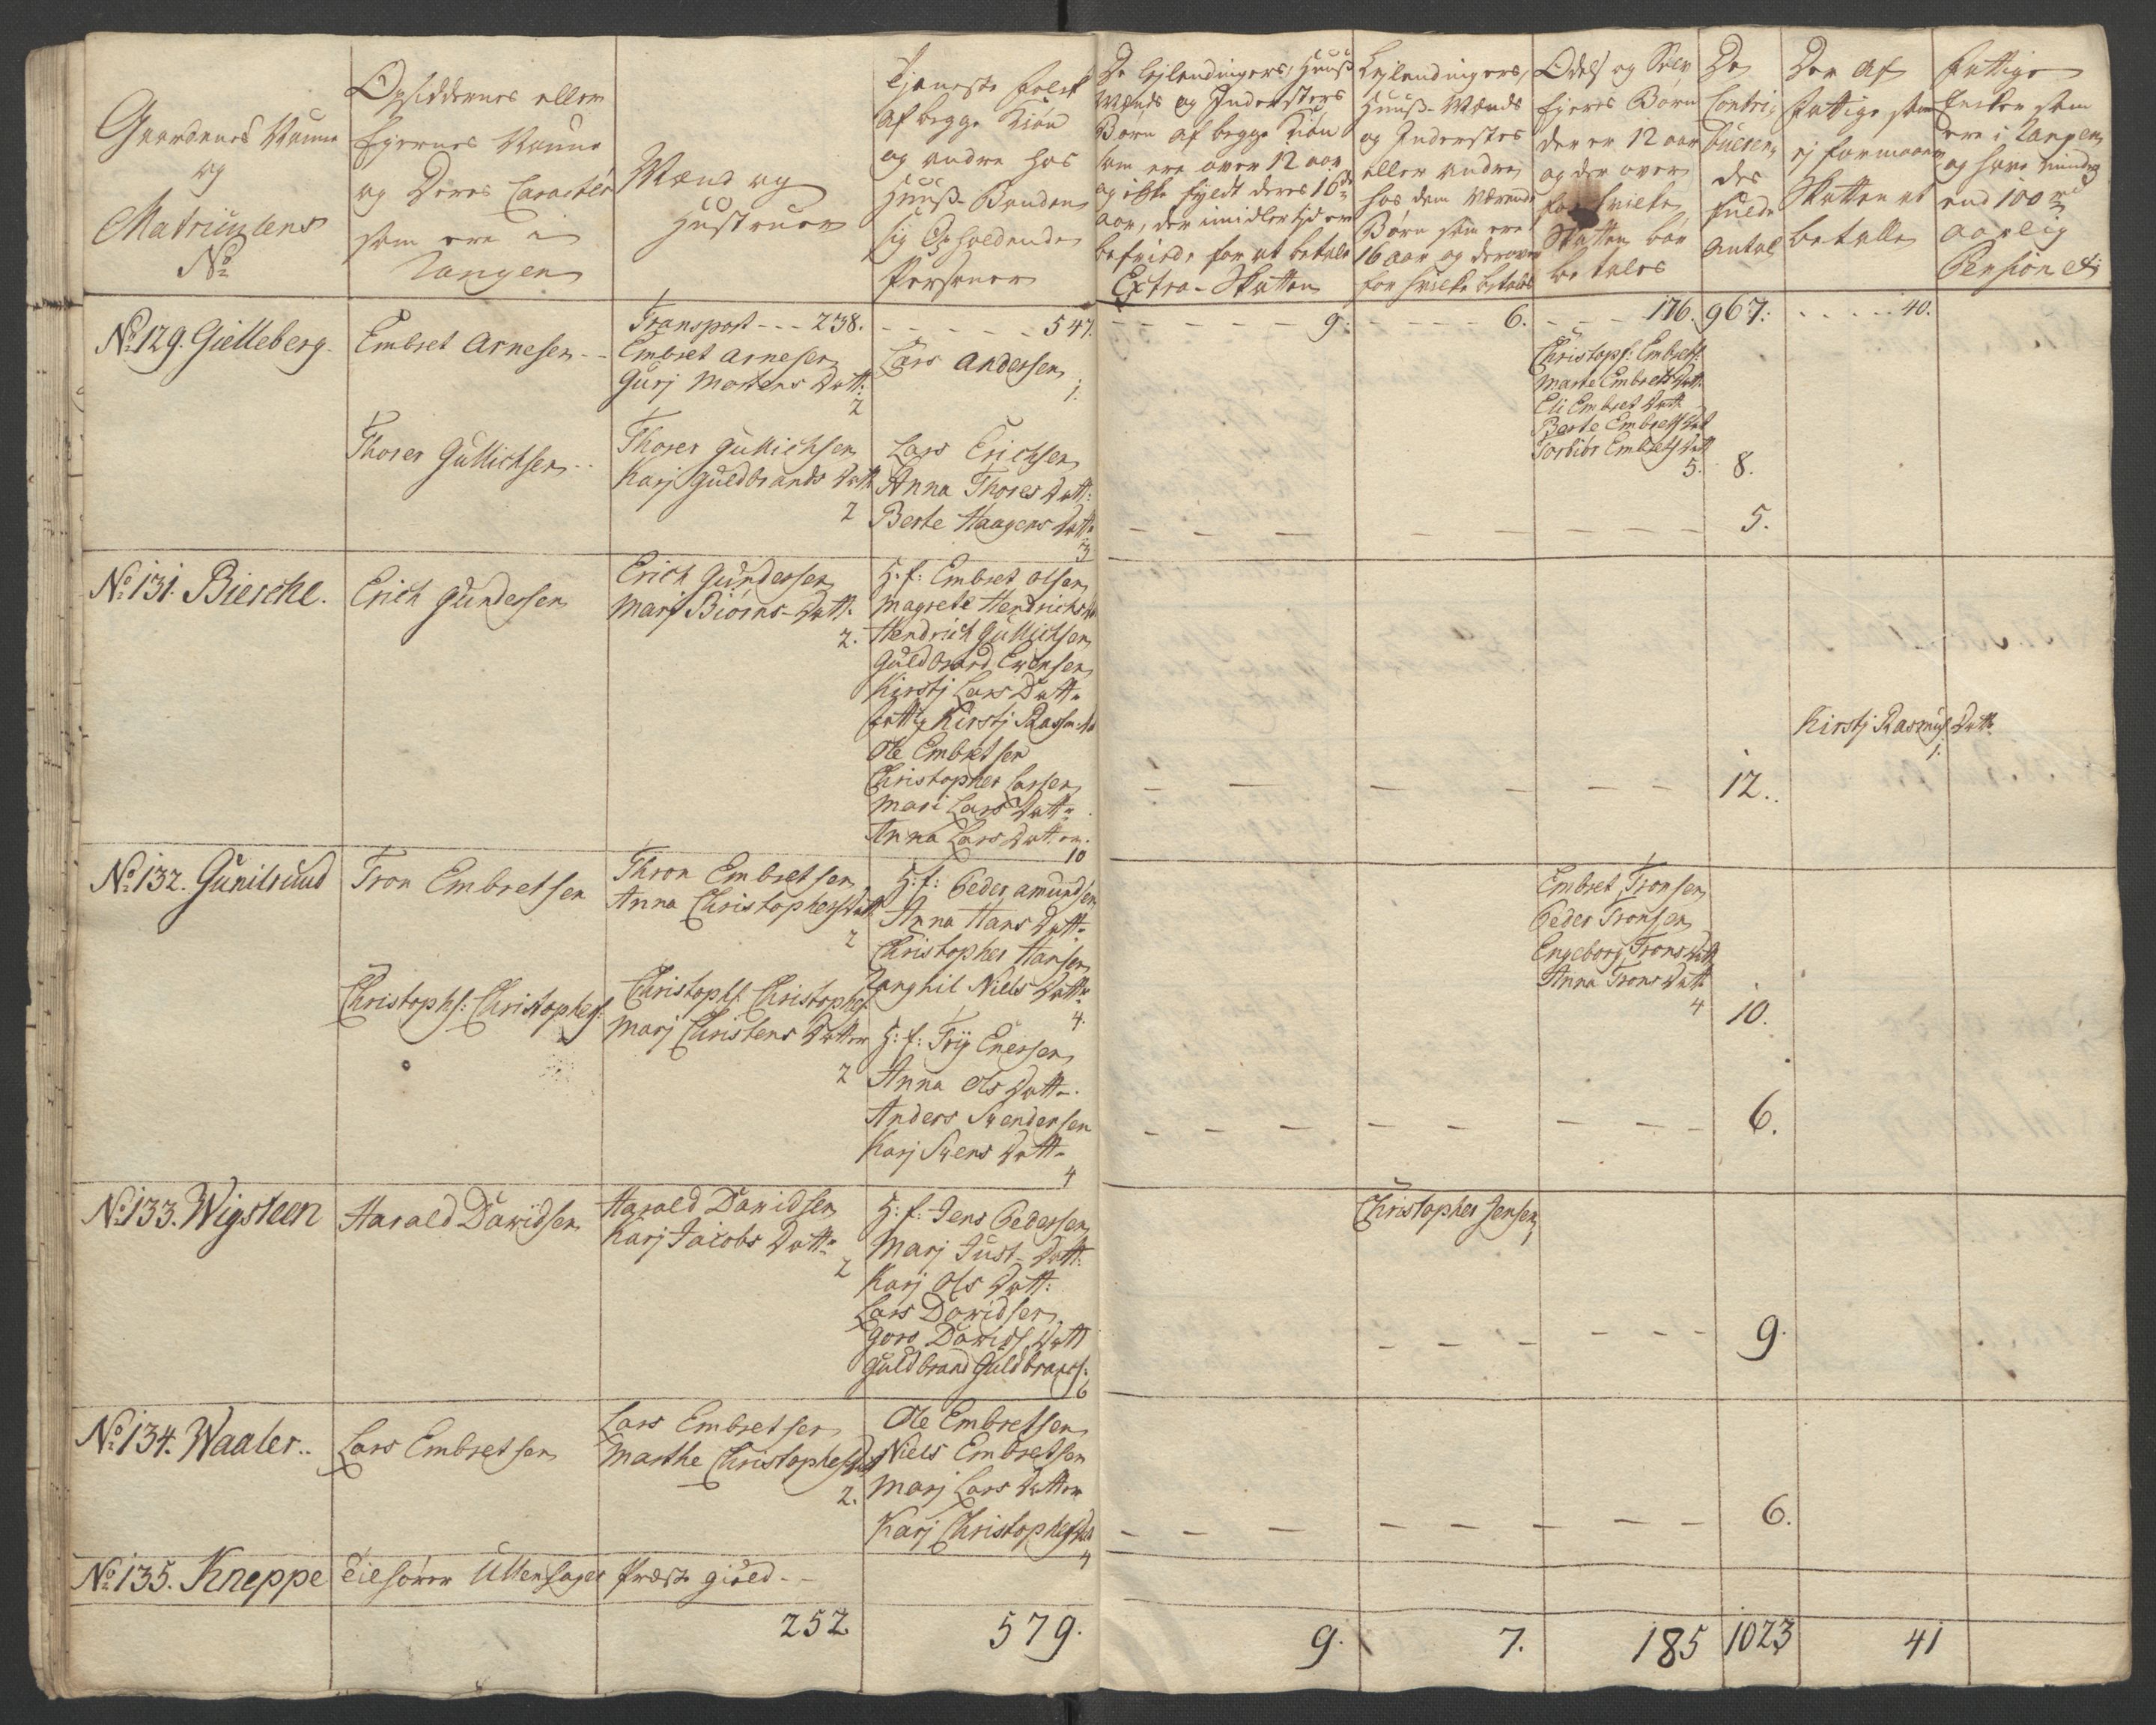 Gaardenes Nafne
og
Matriculens
No
Opsiddernes eller
Ejernes Nafne
og Deres Caracter
som ere i
Rangen
Mænd og
Hustruer
Tjeneste folck
af begge Kiøn
og andre hos
Huus-Bonden
sig Opholdende
Personer
De Lejlendingers, Huus
Mænds og Inderstes
Børn af begge Kiøn
som ere over 12 aar
og ikke fyldt deres 16de
aar, der imidlertid er
befriede for at betale
Extra-Skatten
Lejlendingers,
Huus-Mænds
og Inderstes
eller andre
hos dem værende
Børn som ere
16 aar og derover
for hvilke betales
Odels og Selv
Ejeres Børn
der er 12 aar
og der over
for hvilke
Skatten bør
betales
De
Contri-
bueren-
des
fulde
Antal
Der af
fattige som
ej formaar
Skatten at
betalle
fattige
Encker som
ere i Rangen
og have mindre
end 100 rd
aarlig
Pension etc
Transport - - - 238. - - - - - - 547. - - - - - - 9: - - - - - 6. - - - 176. 967: . . . . . 40.
No 129. Gielleberg. Embret Arnesen - -
Embret Arnesen
Gurj Mortens Datt:
2
Lars Andersen
1.
Christoph: Embrets:
Marte Embrets Datt
Eli Embret Datt
Berte Embrets Dat
Torbiør Embrets Datt
5. 8.
Thorer Gullichsen - -
Thorer Gullichsen
Karj Guldbrands Datt
2
Lars Erichsen
Anna Thores Datt:
Berte Haagens Datt:
3
5.
No 131. Bierche. Erich Gundersen
Erich Gundersen
Marj Biørns-Datt:
2.
H: f: Embret Olsen
Magrete Hendrichs D
Hendrich Gullichsen
Guldbrand Evensen
Kirstj Lars Datt:
fattig Kirstj Rasm: D
Ole Embretsen
Christopher Larsen
Mari Lars Datt:
Anna Lars Datter.
10
12.
Kirstj Rasmus Datt:
1.
No 132. Gunilruud Tron Embretsen
Thron Embretsen
Anna Christophers Datt
2
H: f: Peder Amundsen
Anna Hans Datt:
Christopher Hansen
Ranghil Niels Datt:
4.
Embret Tronsen
Peder Tronsen
Engeborg Trons Datt
Anna Trons Datt
4 10.
Christoph: Christophers:
Christoph: Christophers:
Marj Christens Datter
2
H: f: Tryg Enersen
Anna Ols Datt:
Anders Svendsen
Karj Svens Datt:
4
6.
No 133. Wigsteen Harald Davidsen
Harald Davidsen
Karj Jacobs Datt:
2
H: f: Jens Pedersen
Marj Just-Datt:
Karj Ols Datt:
Lars Davidsen
Goro Davids Datt
Guldbrand Guldbrands:
6
Christopher Jensen
1
9.
No 134. Waaler.. Lars Embretsen
Lars Embretsen
Marthe Christophers Datt
2.
Ole Embretsen
Niels Embretsen
Marj Lars Datter
Karj Christophers Dat
4
6.
No 135. Kneppe tilhører Ullensager Præste gield - -
252. 579. 9. 7. 185 1023 41